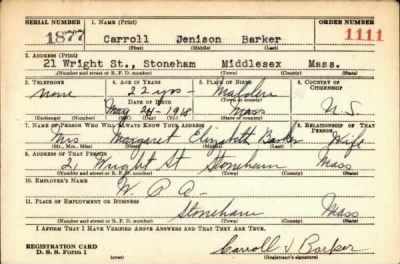 SERIAL NUMBER 1. NAME (Print) ORDER NUMBER
1877 Carroll Jenison Barker 1111
(First) (Middle) (Last)
2. ADDRESS (Print)
21 Wright St., Stoneham Middlesex Mass.
(Number and street or R. F. D. number) (Town) (County) (State)
3. TELEPHONE 4. AGE IN YEARS 5. PLACE OF BIRTH 6. COUNTRY OF CITIZENSHIP
none 22 yrs- Malden
DATE OF BIRTH (Town or county)
May 24-1918 Mass U.S
(Exchange) (Number) (Mo.) (Day) (Yr.) (State or country)
7. NAME OF PERSON WHO WILL ALWAYS KNOW YOUR ADDRESS 8. RELATIONSHIP OF THAT PERSON
Mrs Margaret Elizabeth Barker Wife
(Mr., Mrs., Miss) (First) (Middle) (Last)
9. ADDRESS OF THAT PERSON
21 Wright St Stoneham Mass
(Number and street or R. F. D. number) (Town) (County) (State)
10. EMPLOYER'S NAME
W. P. A-
11. PLACE OF EMPLOYMENT OR BUSINESS
Stoneham Mass
(Number and street or R. F. D. number) (Town) (County) (State)
I AFFIRM THAT I HAVE VERIFIED ABOVE ANSWERS AND THAT THEY ARE TRUE.
REGISTRATION CARD
D. S. S. Form 1 (over) Carroll J Barker
(Registrant's signature)